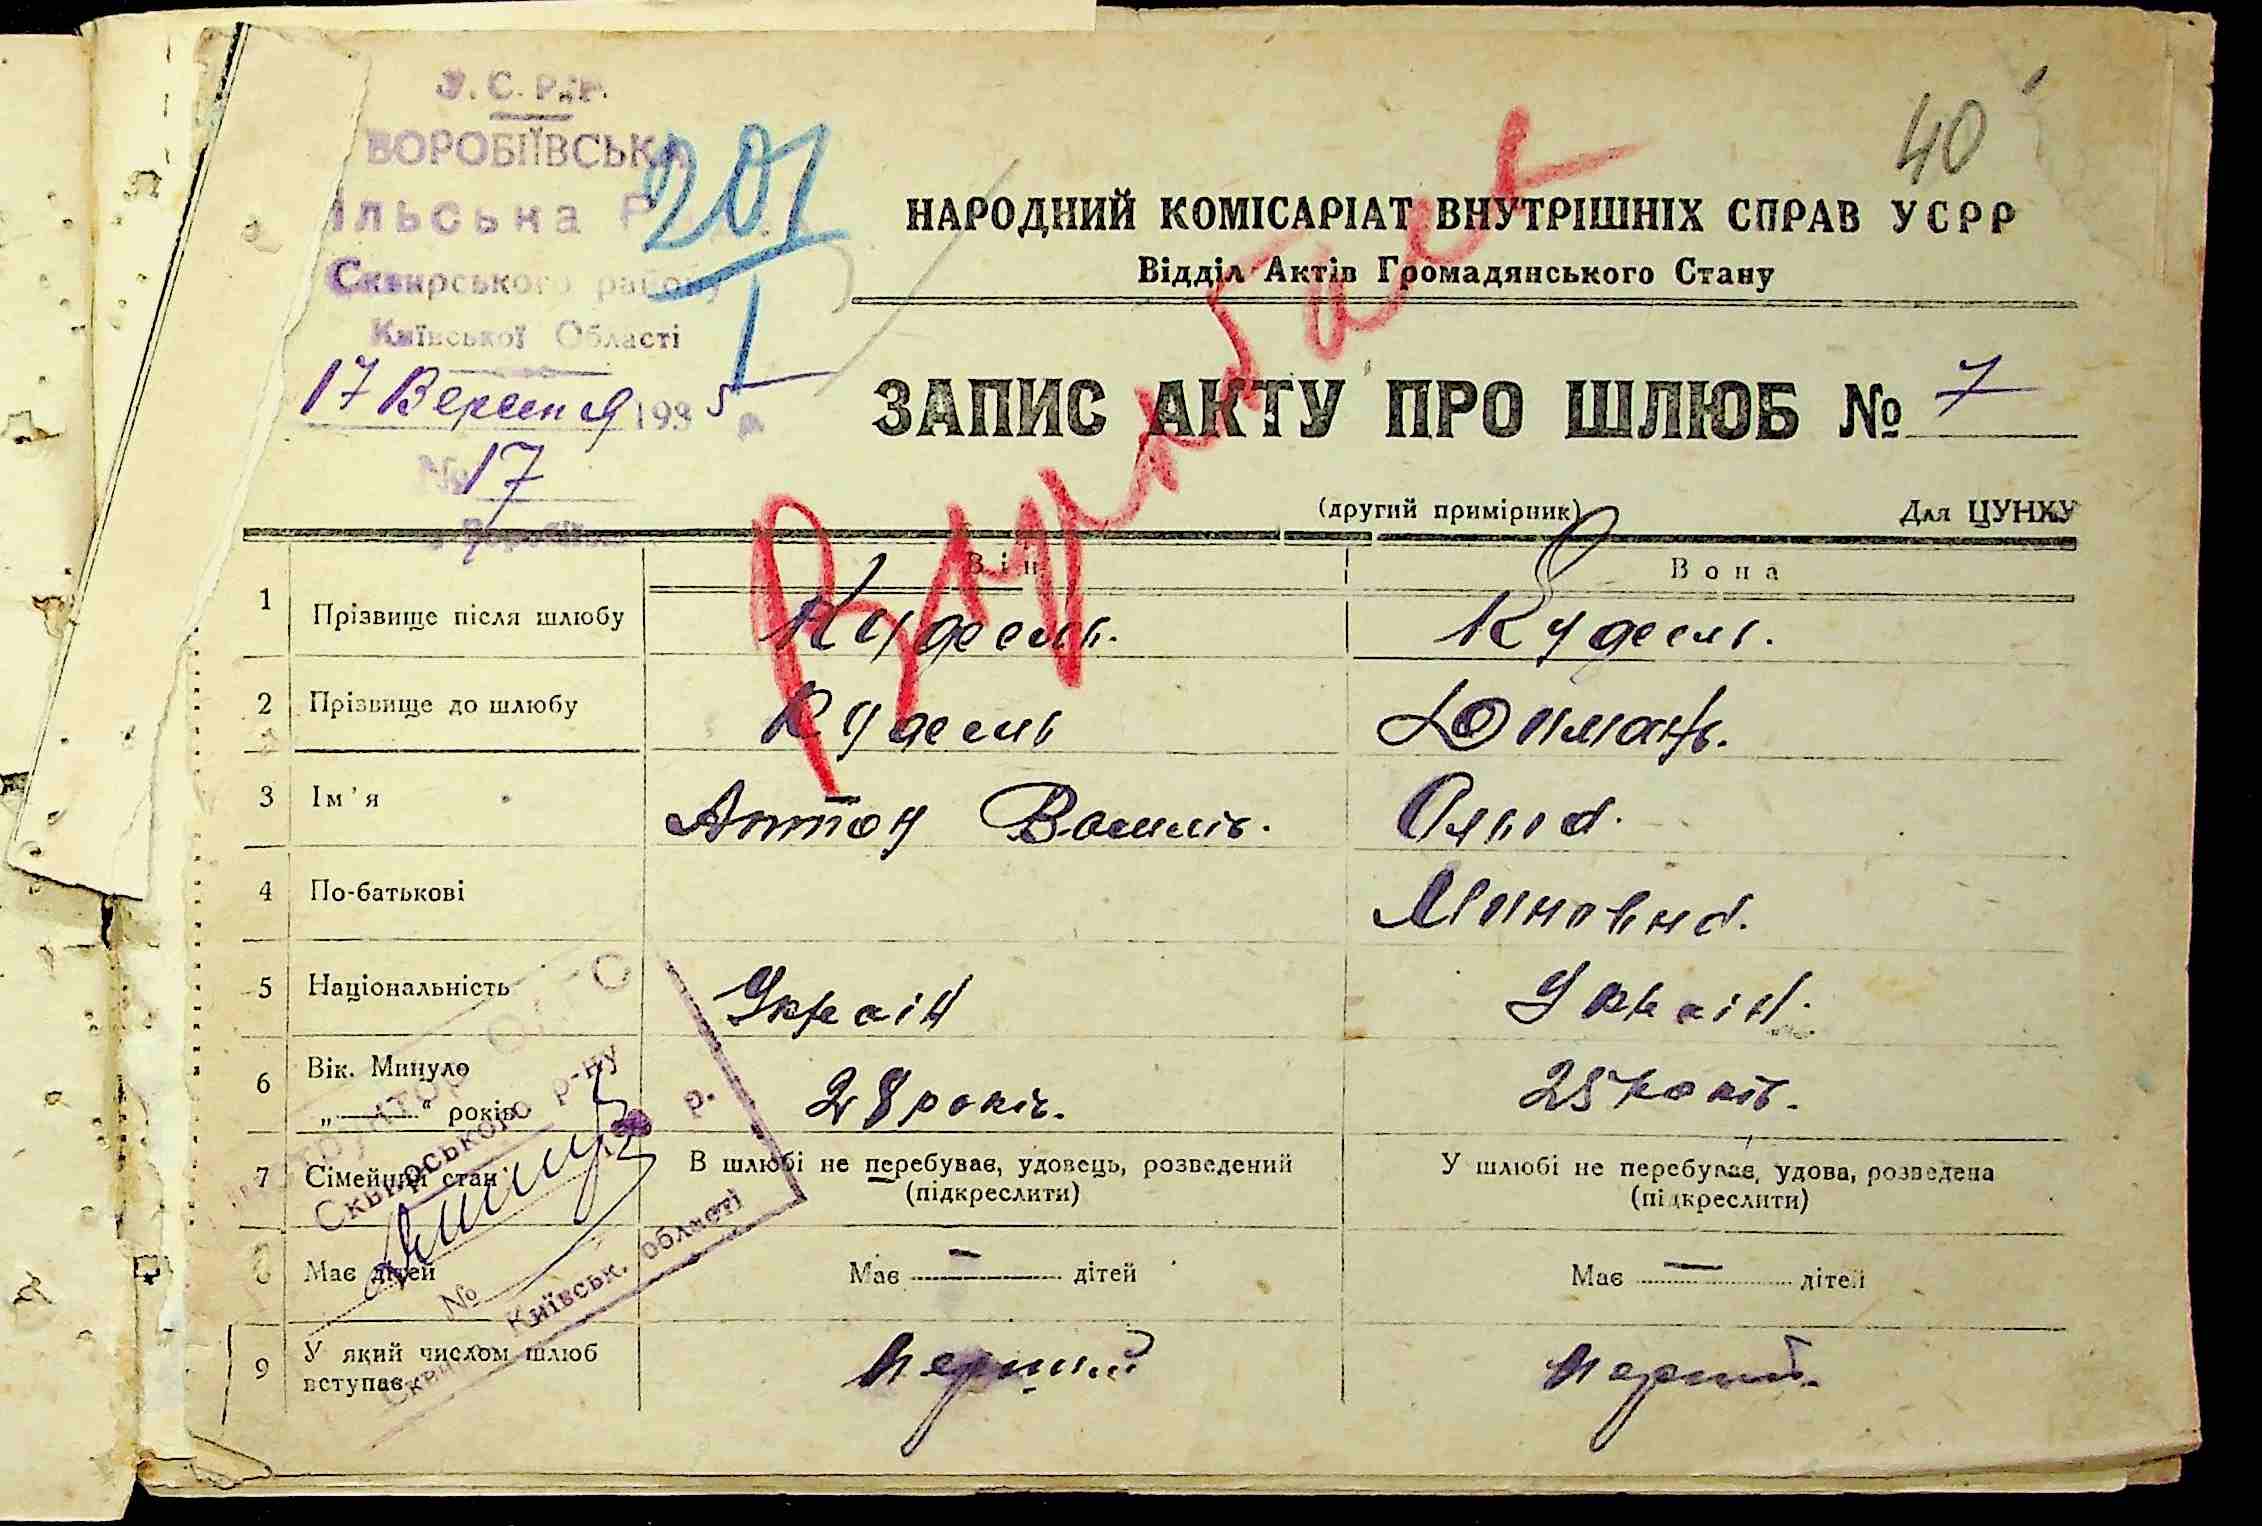 У.С.Р.Р.
ВОРОБІЇВСЬКА
ільська
Сквирського району
Київської Області
17 Вересня 1935 р.
№ 17
201
1
40
НАРОДНИЙ КОМІСАРІАТ ВНУТРІШНІХ СПРАВ УСРР
Відділ Актів Громадянського Стану
ЗАПИС АКТУ ПРО ШЛЮБ № 7
(другий примірник) Для ЦУНХУ
Він Вона
1 Прізвище після шлюбу Кудесль. Кудесль.
2 Прізвище до шлюбу Кудесль
3 Ім'я Антон Василів. Ольга.
4 По-батькові
5 Національність Україн Україн.
6 Вік. Минуло „ “ років 28 років. 25 років.
7 Сімейний стан В шлюбі не перебуває, удовець, розведений (підкреслити) У шлюбі не перебуває, удова, розведена (підкреслити)
8 Має дітей Має — дітей Має — дітей
9 У який числом шлюб вступає перший перший.
Сквирського р-ну
р.
№
Київськ. області